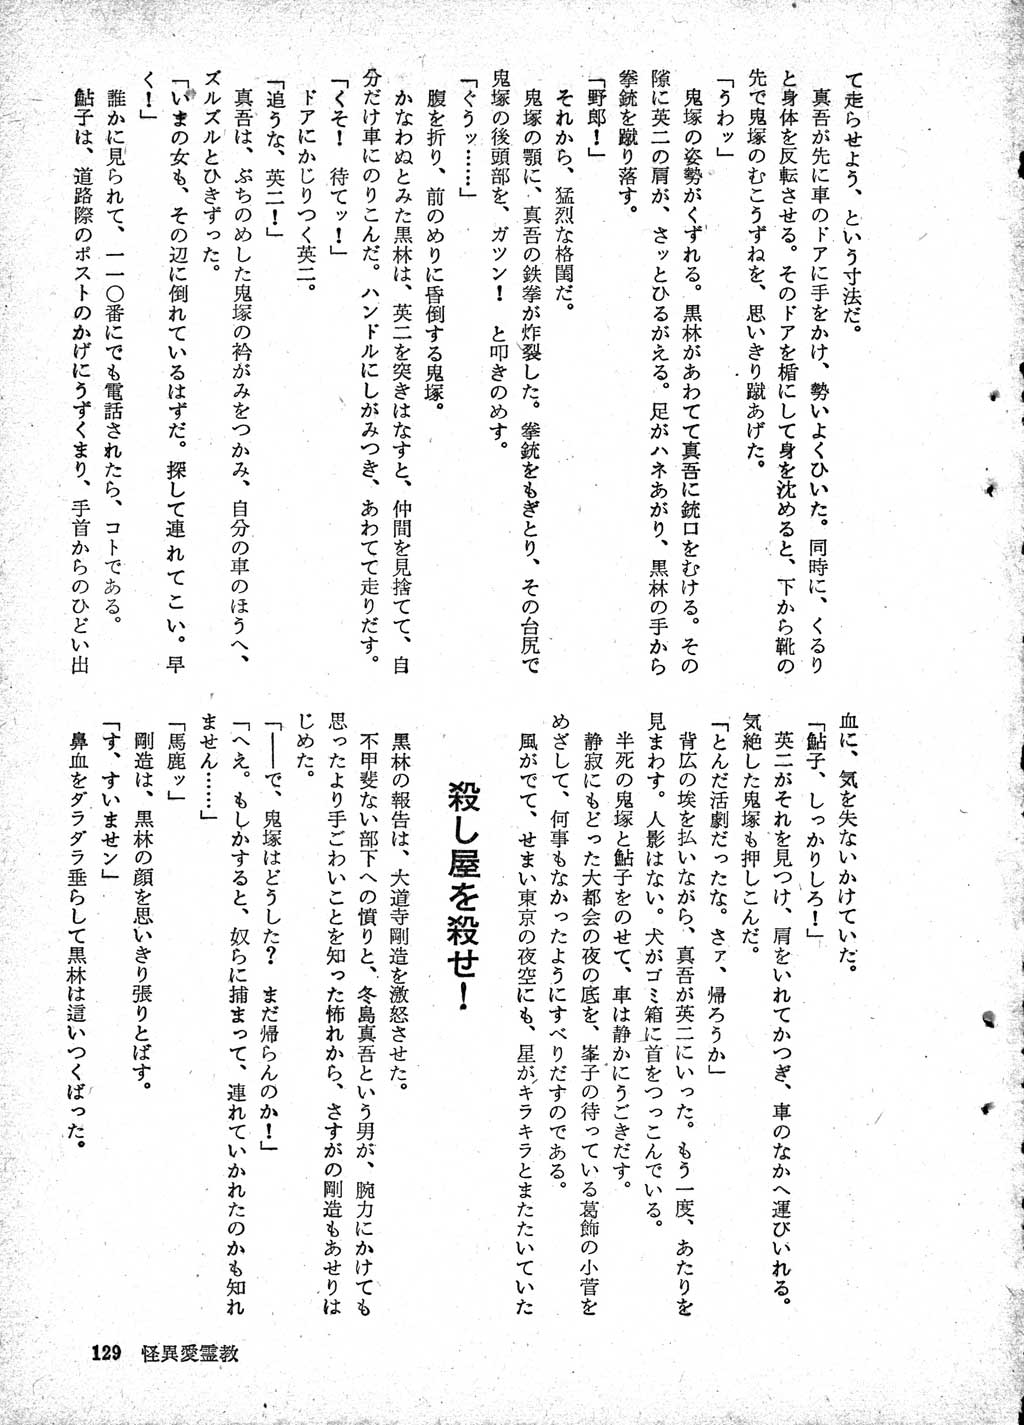 て走らせよう、という寸法だ。
　真吾が先に車のドアに手をかけ、勢いよくひいた。同時に、くるり
と身体を反転させる。そのドアを楯にして身を沈めると、下から靴の
先で鬼塚のむこうずねを、思いきり蹴あげた。
「うわッ」
　鬼塚の姿勢がくずれる。黒林があわてて真吾に銃口をむける。その
隙に英二の肩が、さッとひるがえる。足がハネあがり、黒林の手から
拳銃を蹴り落す。
「野郎！」
　それから、猛烈な格闘だ。
　鬼塚の顎に、真吾の鉄拳が炸裂した。拳銃をもぎとり、その台尻で
鬼塚の後頭部を、ガツン！　と叩きのめす。
「ぐうッ……」
　腹を折り、前のめりに昏倒する鬼塚。
　かなわぬとみた黒林は、英二を突きはなすと、仲間を見捨てて、自
分だけ車にのりこんだ。ハンドルにしがみつき、あわてて走りだす。
「くそ！　待てッ！」
　ドアにかじりつく英二。
「追うな、英二！」
　真吾は、ぶちのめした鬼塚の衿がみをつかみ、自分の車のほうへ、
ズルズルとひきずった。
「いまの女も、その辺に倒れているはずだ。探して連れてこい。早
く！」
　誰かに見られて、一一〇番にでも電話されたら、コトである。
　鮎子は、道路際のポストのかげにうずくまり、手首からのひどい出
血に、気を失ないかけていた。
「鮎子、しっかりしろ！」
　英二がそれを見つけ、肩をいれてかつぎ、車のなかへ運びいれる。
気絶した鬼塚も押しこんだ。
「とんだ活劇だったな。さァ、帰ろうか」
　背広の埃を払いながら、真吾が英二にいった。もう一度、あたりを
見まわす。人影はない。犬がゴミ箱に首をつっこんでいる。
　半死の鬼塚と鮎子をのせて、車は静かにうごきだす。
　静寂にもどった大都会の夜の底を、峯子の待っている葛飾の小菅を
めざして、何事もなかったようにすべりだすのである。
　風がでて、せまい東京の夜空にも、星がキラキラとまたたいていた
殺し屋を殺せ！
　黒林の報告は、大道寺剛造を激怒させた。
　不甲斐ない部下への憤りと、冬島真吾という男が、腕力にかけても
思ったより手ごわいことを知った怖れから、さすがの剛造もあせりは
じめた。
「――で、鬼塚はどうした？　まだ帰らんのか！」
「へえ。もしかすると、奴らに捕まって、連れていかれたのかも知れ
ません……」
「馬鹿ッ」
　剛造は、黒林の顔を思いきり張りとばす。
「す、すいませン」
　鼻血をダラダラ垂らして黒林は這いつくばった。
129　怪異愛霊教